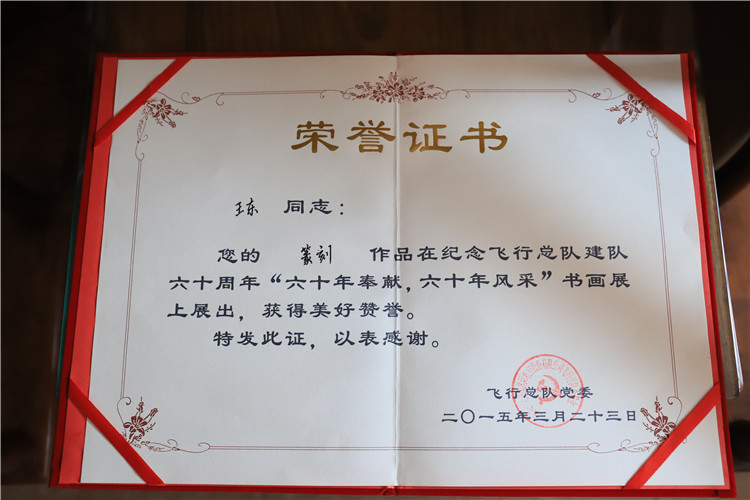 荣誉证书
王东 同志：
您的 篆刻 作品在纪念飞行总队建队
六十周年“六十年奉献，六十年风采”书画展
上展出，获得美好赞誉。
特发此证，以表感谢。
飞行总队党委
二〇一五年三月二十三日